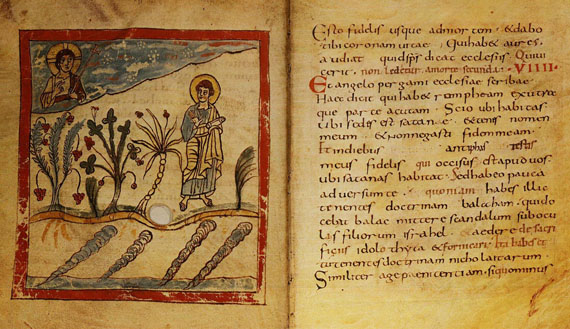 Esto fidelis usque ad mortem · & dabo
tibi coronam uitae · Qui hab& aures,
audiat quid sps dicat ecclesiis Qui uice
rit · non ledetur a morte secunda · VIIII
Et angelo pergami ecclesiae scribae
Haec dicit qui hab& rompheam ex utra
que parte acutam · Scio ubi habitas
ubi sedis est satanae · & tenes nomen
meum · & non negasti fidem meam
Et in diebus antiphas testis
meus fidelis qui occisus est apud uos
ubi satanas habitat · Sed habeo pauca
aduersum te · quoniam habes illic
tenentes doctrinam balaham · qui do
cebat balac mittere scandalum sub ocu
lis filiorum israhel · & aedere de sacri
ficiis idolothyta & fornicari ita habes et
tu tenentes doctrinam nicholaitarum
Similiter age paenitentiam · si quominus